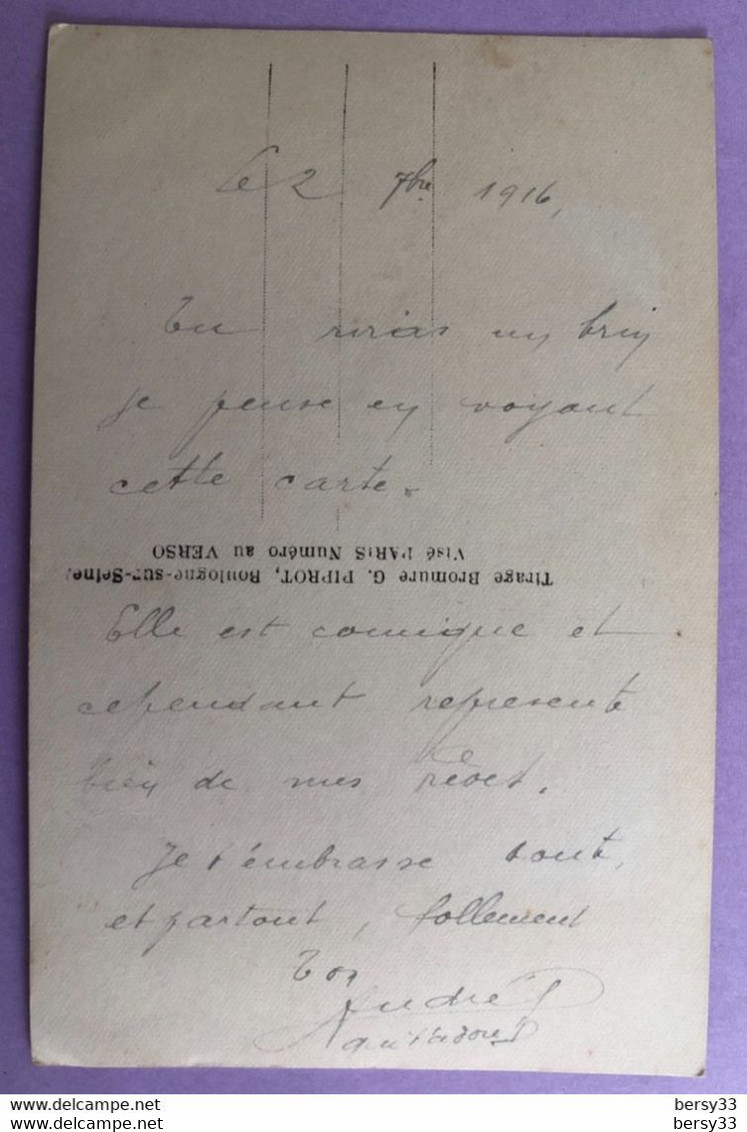 Le 2 7bre 1916,
Tu riras un brin
je pense en voyant
cette carte.
Visé PARIS Numéro au VERSO
Tirage Bromure G. PIPROT, Boulogne-sur-Seine.
Elle est comique et
cependant represente
bien de mes rêves.
Je t'embrasse tout,
et partout, follement
Ton
André
qui t'adore
bersy33
bersy33